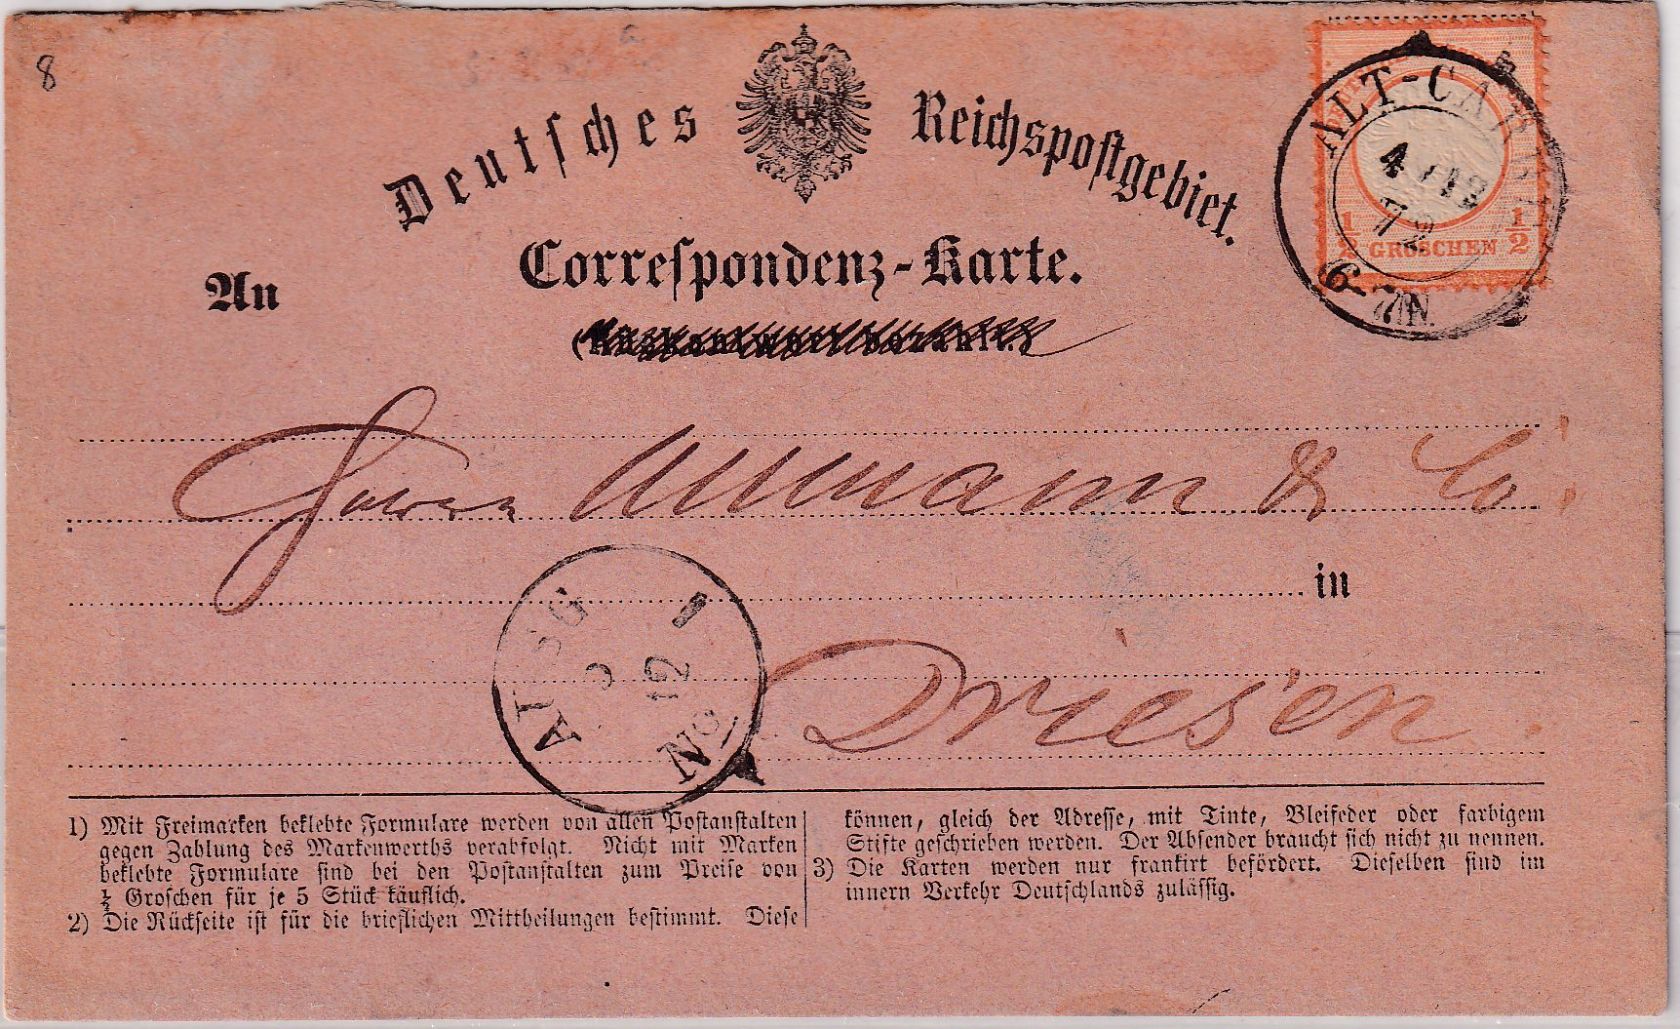 8
Deutsches Reichspostgebiet.
Correspondenz-Karte.
An
ALT-CARBE
4 12
72
6-7N.
1/2 GROSCHEN 1/2
Herren Ullmann & Co.
in
Driesen.
AUSG
No 1
12
1) Mit Freimarken beklebte Formulare werden von allen Postanstalten
gegen Zahlung des Markenwerths verabfolgt. Nicht mit Marken
beklebte Formulare sind bei den Postanstalten zum Preise von
½ Groschen für je 5 Stück käuflich.
2) Die Rückseite ist für die brieflichen Mittheilungen bestimmt. Diese
können, gleich der Adresse, mit Tinte, Bleifeder oder farbigem
Stifte geschrieben werden. Der Absender braucht sich nicht zu nennen.
3) Die Karten werden nur frankirt befördert. Dieselben sind im
innern Verkehr Deutschlands zulässig.